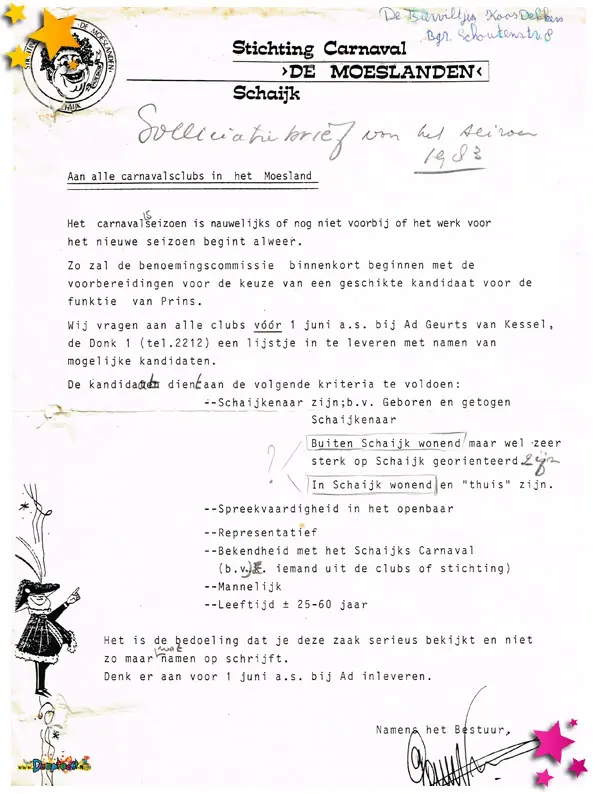 De Bierviltjes Koos Dekkers
Bgr. Schoutenstr 8
DE MOESLANDEN
Stichting Carnaval
›DE MOESLANDEN‹
Schaijk
Sollicitatiebrief van het seizoen
1983
Aan alle carnavalsclubs in het Moesland
Het carnavalsseizoen is nauwelijks of nog niet voorbij of het werk voor
het nieuwe seizoen begint alweer.
Zo zal de benoemingscommissie binnenkort beginnen met de
voorbereidingen voor de keuze van een geschikte kandidaat voor de
funktie van Prins.
Wij vragen aan alle clubs vóór 1 juni a.s. bij Ad Geurts van Kessel,
de Donk 1 (tel.2212) een lijstje in te leveren met namen van
mogelijke kandidaten.
De kandidaat dient aan de volgende kriteria te voldoen:
--Schaijkenaar zijn;b.v. Geboren en getogen
Schaijkenaar
? Buiten Schaijk wonend maar wel zeer
sterk op Schaijk georienteerd zijn
In Schaijk wonend en "thuis" zijn.
--Spreekvaardigheid in het openbaar
--Representatief
--Bekendheid met het Schaijks Carnaval
(b.v. iemand uit de clubs of stichting)
--Mannelijk
--Leeftijd ± 25-60 jaar
Het is de bedoeling dat je deze zaak serieus bekijkt en niet
zo maar wat namen op schrijft.
Denk er aan voor 1 juni a.s. bij Ad inleveren.
Namens het Bestuur,